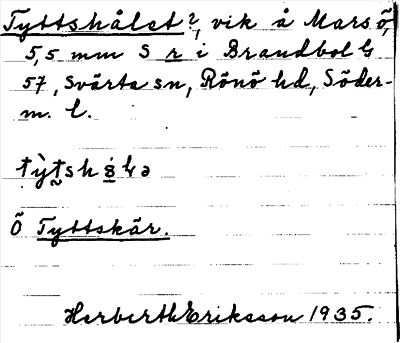 Tyttshålet?, vik å Marsö,
5,5 mm S r i Brandbol G
57, Svärta sn, Rönö hd, Söder-
m. l.
Ö Tyttskär.
Herberth Eriksson 1935.